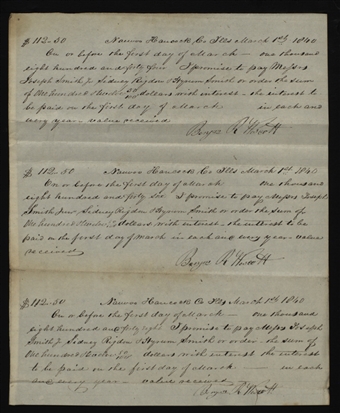 $112-50 Nauvoo Hancock Co Ills March 1st 1840
On or before the first day of March — one thousand
eight hundred and fifty four I promise to pay Messrs
Joseph Smith Jr Sidney Rigdon & Hyrum Smith or order the sum
of One hundred & twelve 50/100 dollars with interest — the interest to
be paid on the first day of March in each and
every year — value received
$112.50 Nauvoo Hancock Co Ills March 1st 1840
On or before the first day of March one thousand
eight hundred and fifty I promise to pay Messrs Joseph
Smith Junr Sidney Rigdon & Hyrum Smith or order the Sum of
One hundred & twelve 50/100 dollars with interest the interest to be
paid on the first day of March in each and every year — value
received
$112-50 Nauvoo Hancock Co Ills March 1st 1840
On or before the first day of March — one thousand
eight hundred and fifty eight I promise to pay Messrs Joseph
Smith Jr Sidney Rigdon & Hyrum Smith or order — the sum of
One hundred & twelve 50/100 dollars with interest the interest
to be paid on the first day of March in each
and every year — value received